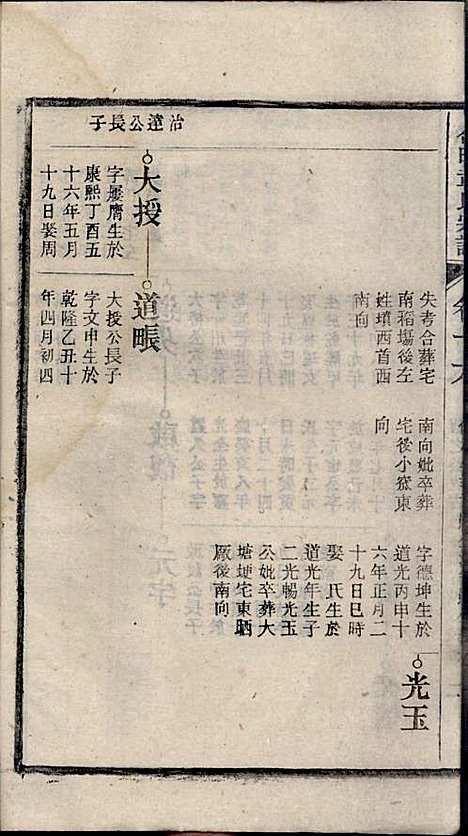 失考合葬宅
南稻塲後左
姓墳西首西
南向
南向妣卒葬
宅後小寮東
向
字德坤生於
道光丙申十
六年正月二
十九日巳時
娶　氏生於
道光年生子
二光暢光玉
公妣卒葬大
塘埂宅東晒
厰後南向
光玉
治達公長子
大授
字屢膺生於
康熙丁酉五
十六年五月
十九日娶周
道賬
大授公長子
字文申生於
乾隆乙丑十
年四月初四